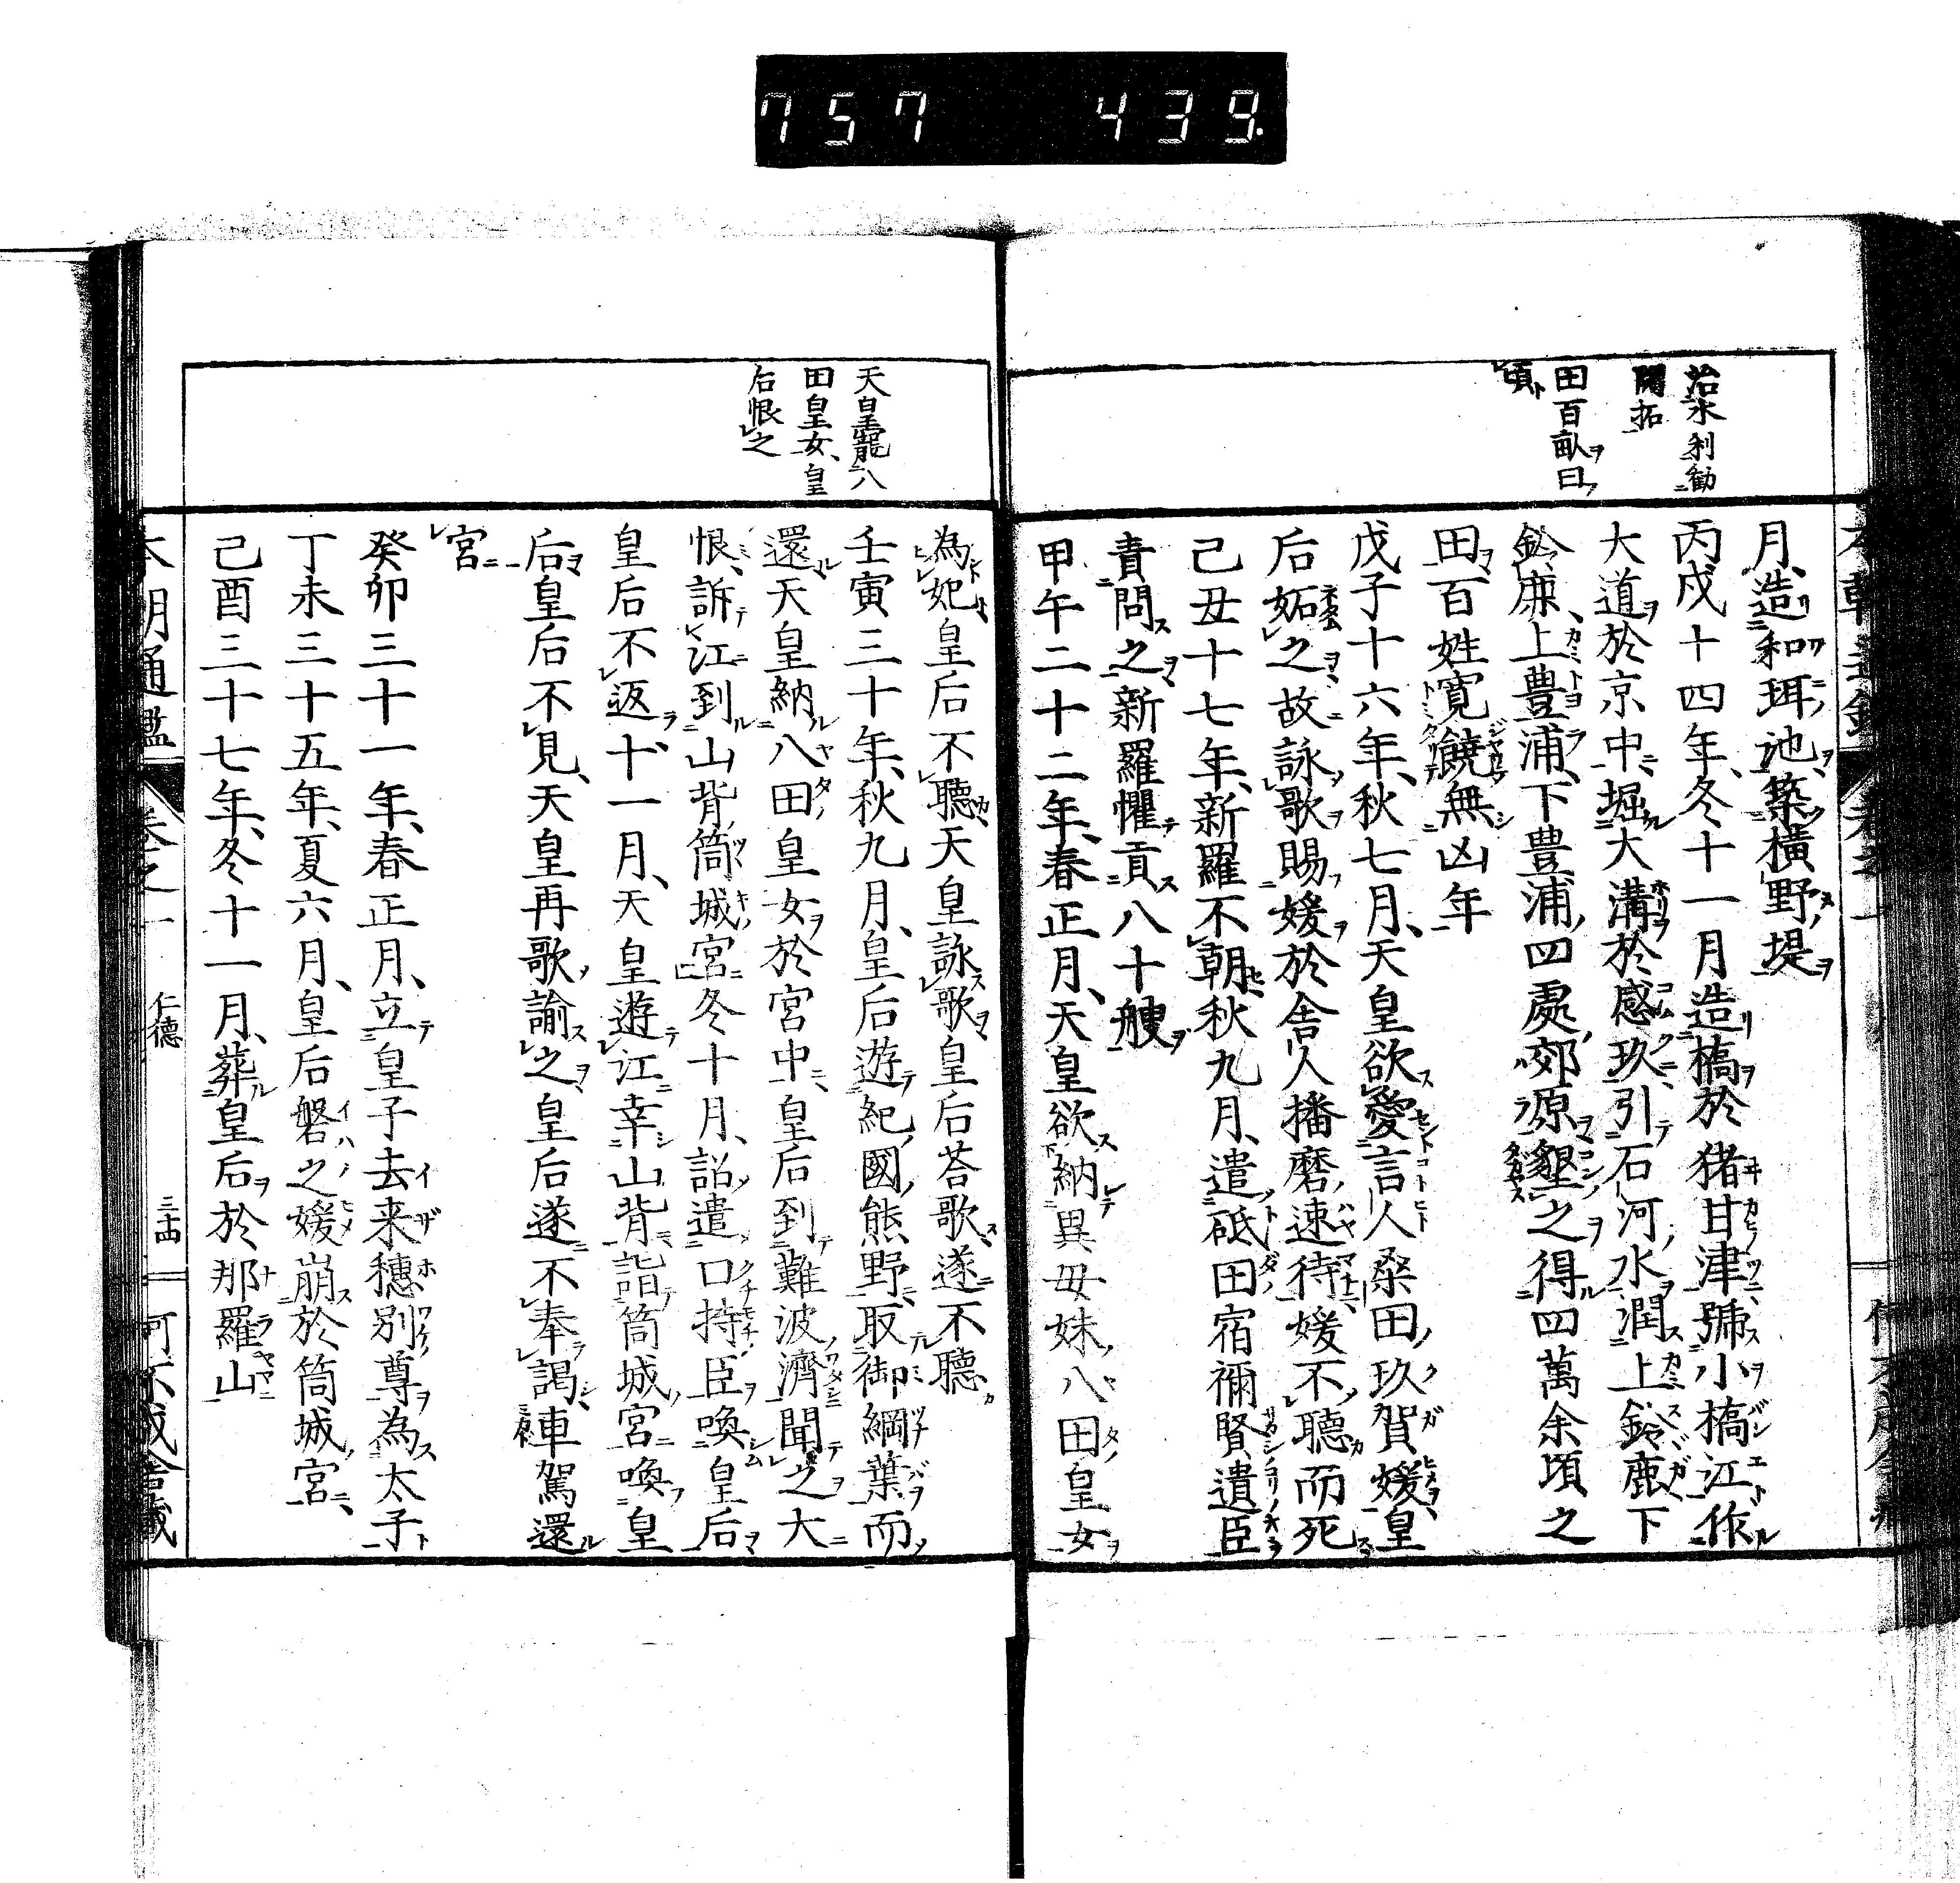 757 439.
治水利勧
開拓
田百畝曰
頃
月、造和珥池、築横野堤
丙戌十四年、冬十一月造橋於猪甘津號小橋江作
大道於京中、堀大溝於感玖引石河水潤上鈴鹿下
鈴鹿、上豊浦、下豊浦四處郊原墾之得四萬余頃之
田百姓寛饒無凶年
戊子十六年、秋七月、天皇欲愛言人桑田玖賀媛皇
后妬之故詠歌賜媛於舎人播磨速待媛不聴而死
己丑十七年、新羅不朝秋九月、遣砥田宿禰賢遺臣
責問之新羅懼貢八十艘
甲午二十二年、春正月、天皇欲納異母妹八田皇女
天皇寵八
田皇女、皇
后恨之
為妃皇后不聴天皇詠歌皇后荅歌遂不聴
壬寅三十年、秋九月、皇后遊紀國熊野取御綱葉而
還天皇納八田皇女於宮中、皇后到難波濟聞之大
恨、訴江到山背筒城宮冬十月、詔遣口持臣喚皇后
皇后不返十一月、天皇遊江幸山背詣筒城宮喚皇
后皇后不見、天皇再歌諭之皇后遂不奉謁、車駕還
宮
癸卯三十一年、春正月、立皇子去来穂別尊為太子
丁未三十五年、夏六月、皇后磐之媛崩於筒城宮、
己酉三十七年、冬十一月、葬皇后於那羅山
本朝通鑑 巻之一 仁德 三十四 何不成舎蔵